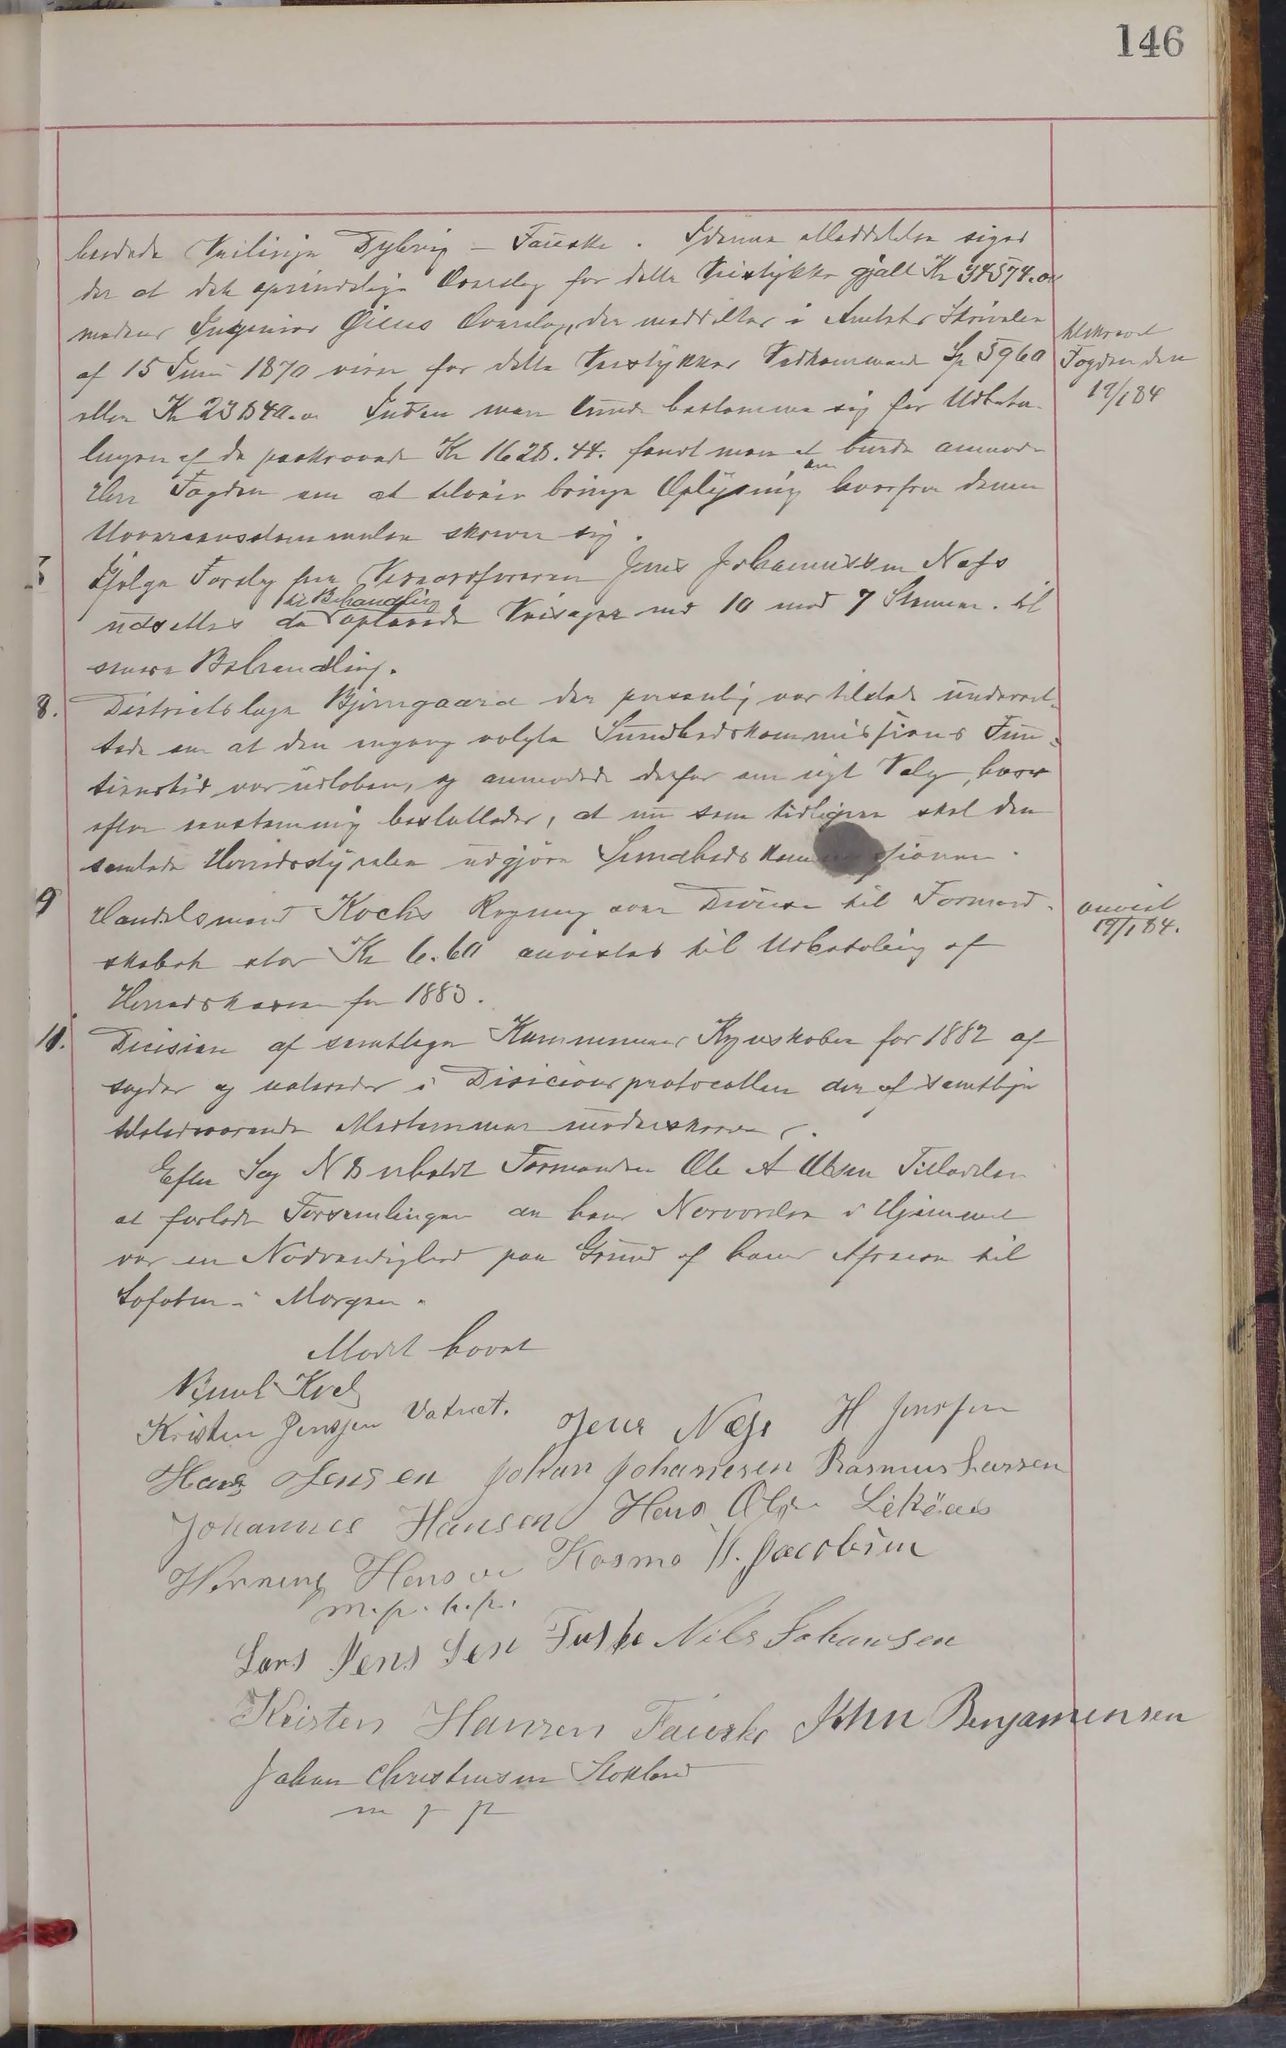 146
Veilinje Dybvig - Fauske. Idenne Meddelelse siges
der at det oprindelige Overslag for dette Veistykke gjælt Kr 34574.00
medens Ingeniør Overslag, der meddeltes i Amtets Skrivelse
af 15 Juni 1870 viser for dette Veistykkes Vedkommende Sp 5960
eller Kr 23840.00 Inden man kunde bestemme sig for Udbeta-
lingen af de paakrævede Kr 1628.44. fandt man at burde anmode
Herr Fogden om at tilveie bringe Oplysning om hvorfra denne
Uoverensstemmelse skriver sig.
Tilskrevet
Fogden den
19/1 84
Ifølge Forslag fra Viseordføreren Jens Johannessen Næss
udsættes de til Behandling opførte Veisager med 10 mod 7 Stemmer. til
senere Behandling.
8. Districtslæge Bjørngaard der personlig var tilstede underret-
tede om at den engang valgte Sundhedskommissions Fun-
tionstid var udløben, og anmodede derfor om nyt Valg, hvor
efter enstemmig besluttedes, at nu som tidligere skal den
samlede Herredsstyrelse udgjøre Sundhedskommissionen.
9 Handelsmand Kochs Regning over Diverse til Formand-
skabet stor Kr 6.60 anvistes til Udbetaling af
Herredskassen for 1883.
anvist
19/1 84.
10. Dicision af samtlige Kommunens Regnskaber for 1882 af
sagdes og noteredes i Disicionsprotocollen der af samtlige
tilstedeværende Medlemmer underskreves.
Efter Sag N 8 erholdt Formanden Ole A Olsen Tilladelse
at forlade Forsamlingen da hans Nærværelse i Hjemmet
var en Nødvendighed paa Grund af hans Afreise til
Lofoten i Morgen.
Mødet hævet
Kristen Jenssen Vatnet. Jens Næss H Jenssen
Hans Jensen Johan Johannesen Rasmus Larssen
Johannes Hansen Hans Olsen
Henning Hansen Kosmo W. Jacobsen
m. p. h. p.
Lars Jens Sen Fuske Nils Johansen
Kristen Hansen Fauske John Benjamensen
Johan Christensen Stokland
m p p